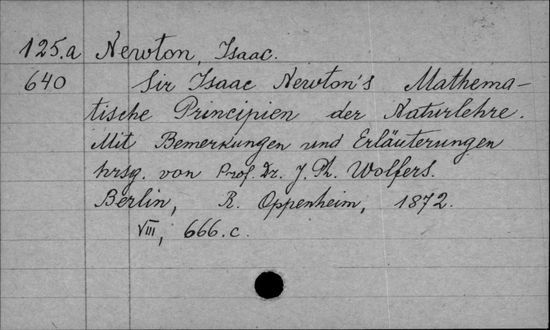 125.a Newton, Isaac.
640 Sir Isaac Newton's Mathema-
tische Principien der Naturlehre.
Mit Bemerkungen und Erläuterungen
hrsg. von Prof. Dr. J. Ph. Wolfers.
Berlin, R. Oppenheim, 1872.
VIII, 666.c.